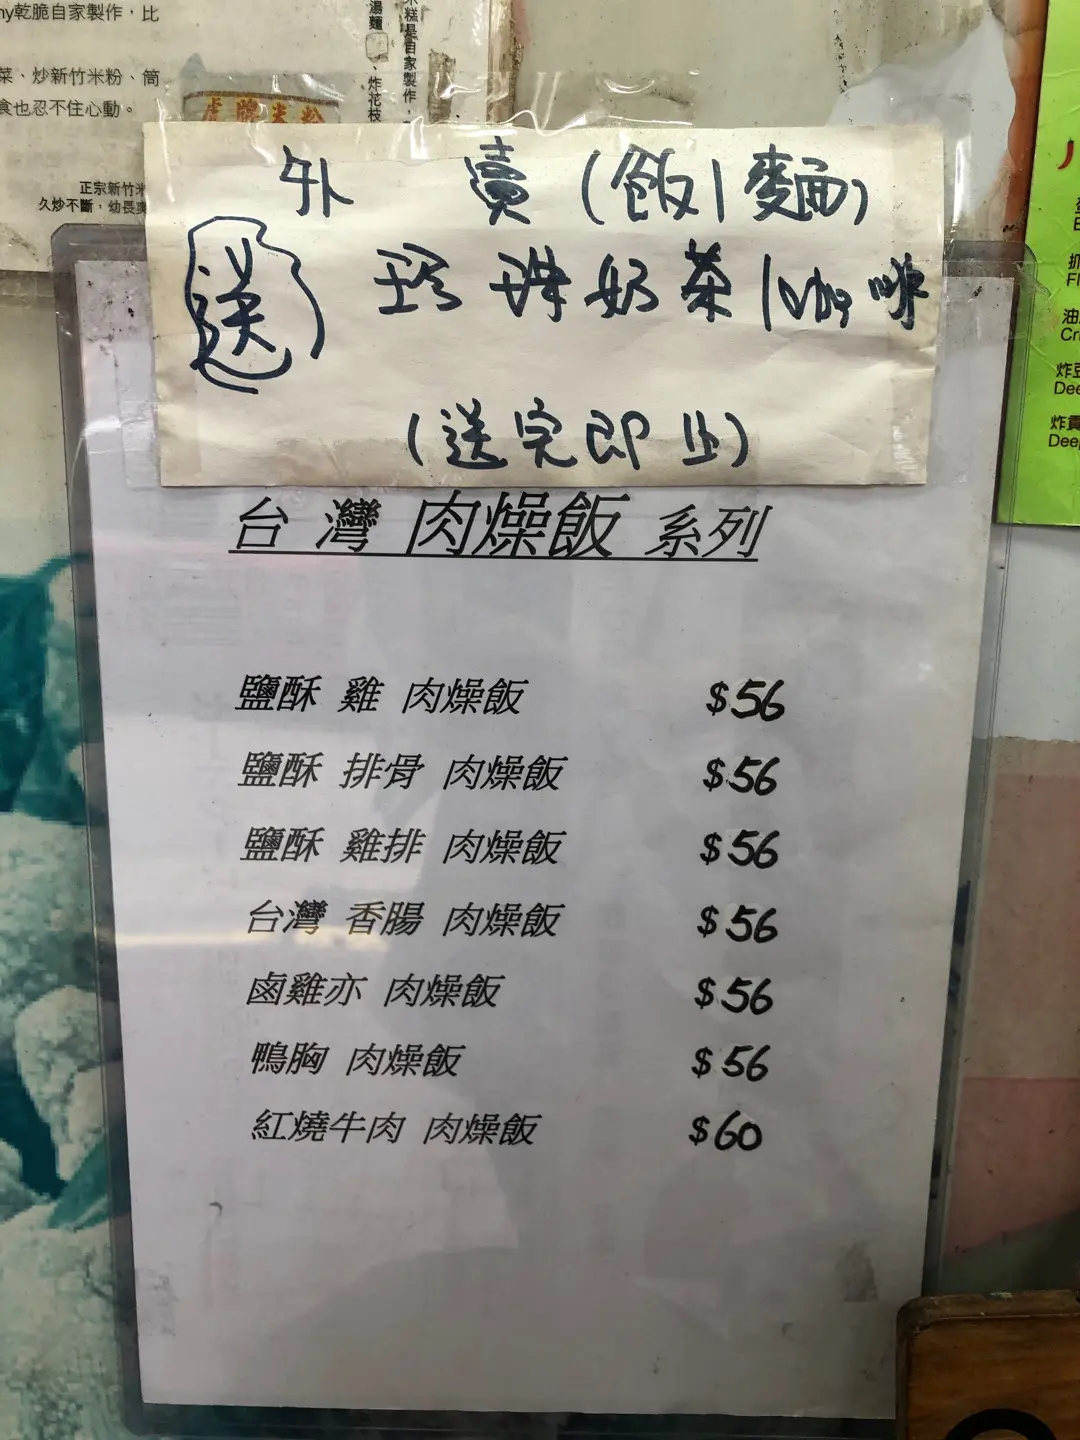 ny乾脆自家製作，比
菜、炒新竹米粉、筒
食也忍不住心動。
湯麵
、炸花枝
米糕是自家製作，
虎牌米粉
正宗新竹米
久炒不斷，幼長爽
外 賣 (飯|麵)
送 珍珠奶茶|咖啡
(送完即止)
台 灣 肉燥飯 系列
鹽酥 雞 肉燥飯 $56
鹽酥 排骨 肉燥飯 $56
鹽酥 雞排 肉燥飯 $56
台灣 香腸 肉燥飯 $56
鹵雞亦 肉燥飯 $56
鴨胸 肉燥飯 $56
紅燒牛肉 肉燥飯 $60
抓
Fl
油
Cru
炸豆
Dee
炸貢
Deep